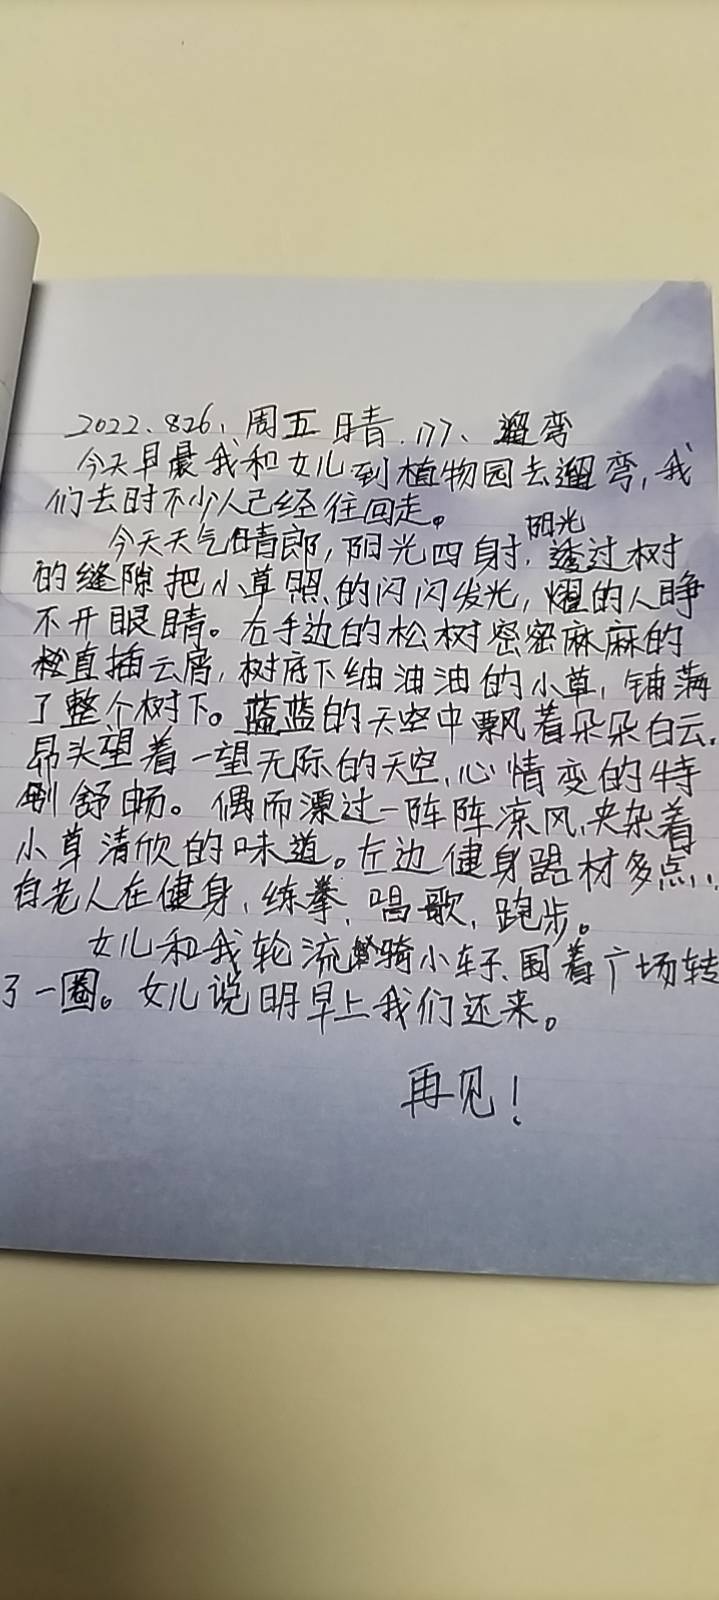 2022、826、周五 晴、177、遛弯
今天早晨我和女儿到植物园去遛弯,我
们去时不少人已经往回走。
今天天气晴郎,阳光四射,阳光透过树
的缝隙把小草照的闪闪发光,耀的人睁
不开眼睛。右手边的松树密密麻麻的
直插云霄,树底下绿油油的小草,铺满
了整个树下。蓝蓝的天空中飘着朵朵白云,
昂头望着一望无际的天空,心情变的特
别舒畅。偶而漂过一阵阵凉风,夹杂着
小草清欣的味道。左边健身器材多点,
有老人在健身、练拳、唱歌、跑步。
女儿和我轮流骑小车子、围着广场转
了一圈。女儿说明早上我们还来。
再见!